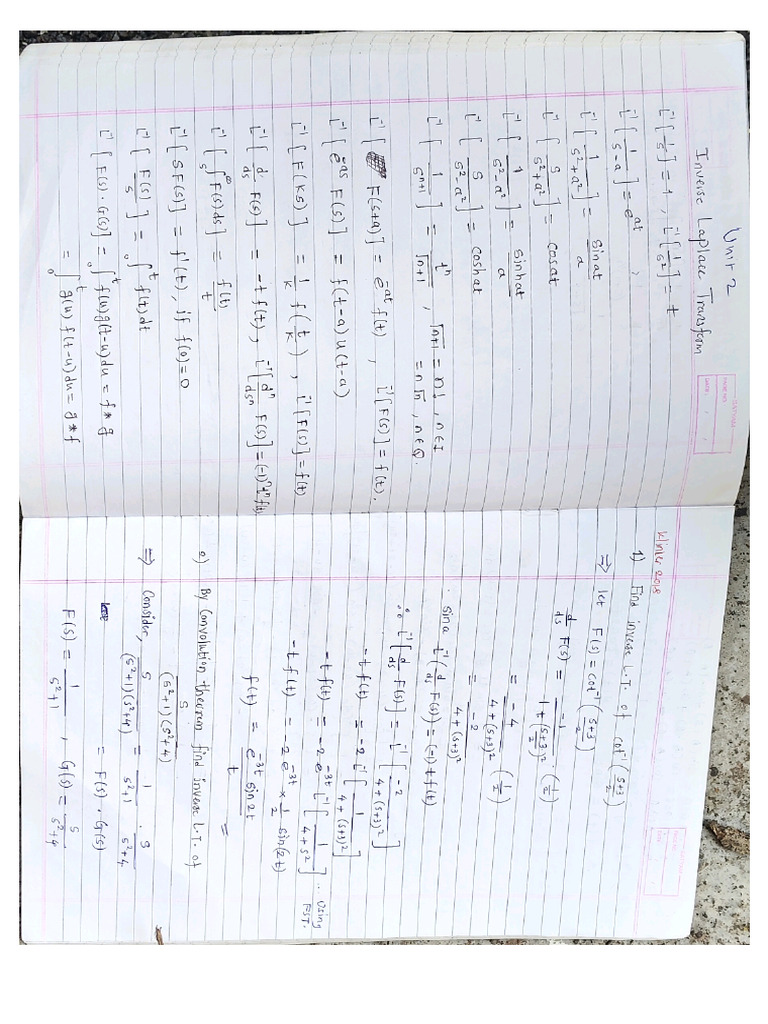 Unit 2
Inverse Laplace Transform
L⁻¹[1/s] = 1, L⁻¹[1/s²] = t
L⁻¹[1/(s-a)] = e^at,
L⁻¹[1/(s²+a²)] = sinat/a
L⁻¹[s/(s²+a²)] = cosat
L⁻¹[1/(s²-a²)] = sinhat/a
L⁻¹[s/(s²-a²)] = coshat
L⁻¹[1/s^(n+1)] = t^n/√(n+1), √(n+1) = n!, n∈I
= n√n, n∈Q.
L⁻¹[F(s+a)] = e^-at f(t), L⁻¹[F(s)] = f(t).
L⁻¹[e^-as F(s)] = f(t-a) u(t-a)
L⁻¹[F(ks)] = 1/k f(t/k), L⁻¹[F(s)] = f(t)
L⁻¹[d/ds F(s)] = -t f(t), L⁻¹[d^n/ds^n F(s)] = (-1)^n t^n f(t)
L⁻¹[∫_s^∞ F(s) ds] = f(t)/t
L⁻¹[SF(s)] = f'(t), if f(0)=0
L⁻¹[F(s)/s] = ∫_0^t f(t) dt
L⁻¹[F(s)·G(s)] = ∫_0^t f(u) g(t-u) du = f*g
= ∫_0^t g(u) f(t-u) du = g*f
Winter 2018
1) Find inverse L.T. of cot⁻¹((s+3)/2)
⇒ let F(s) = cot⁻¹((s+3)/2)
d/ds F(s) = -1/(1+((s+3)/2)²) · (1/2)
= -4/(4+(s+3)²) (1/2)
= -2/(4+(s+3)²)
L⁻¹(d/ds F(s)) = (-1) t f(t)
∴ L⁻¹[d/ds F(s)] = L⁻¹[-2/(4+(s+3)²)]
-t f(t) = -2 L⁻¹[1/(4+(s+3)²)]
-t f(t) = -2 e^-3t L⁻¹[1/(4+s²)] .. Using
F.S.T.
-t f(t) = -2 e^-3t × 1/2 sin(2t)
f(t) = e^-3t sin2t/t =
2) By Convolution theorem find inverse L.T. of
s/((s²+1)(s²+4))
⇒ Consider, s/((s²+1)(s²+4)) = 1/(s²+1) · s/(s²+4)
= F(s) · G(s)
F(s) = 1/(s²+1), G(s) = s/(s²+4)